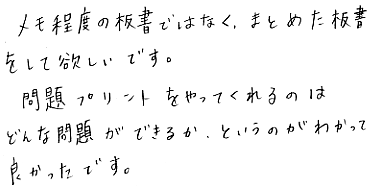 メモ程度の板書ではなく、まとめた板書
をして欲しいです。
問題プリントをやってくれるのは
どんな問題ができるか、というのがわかって
良かったです。